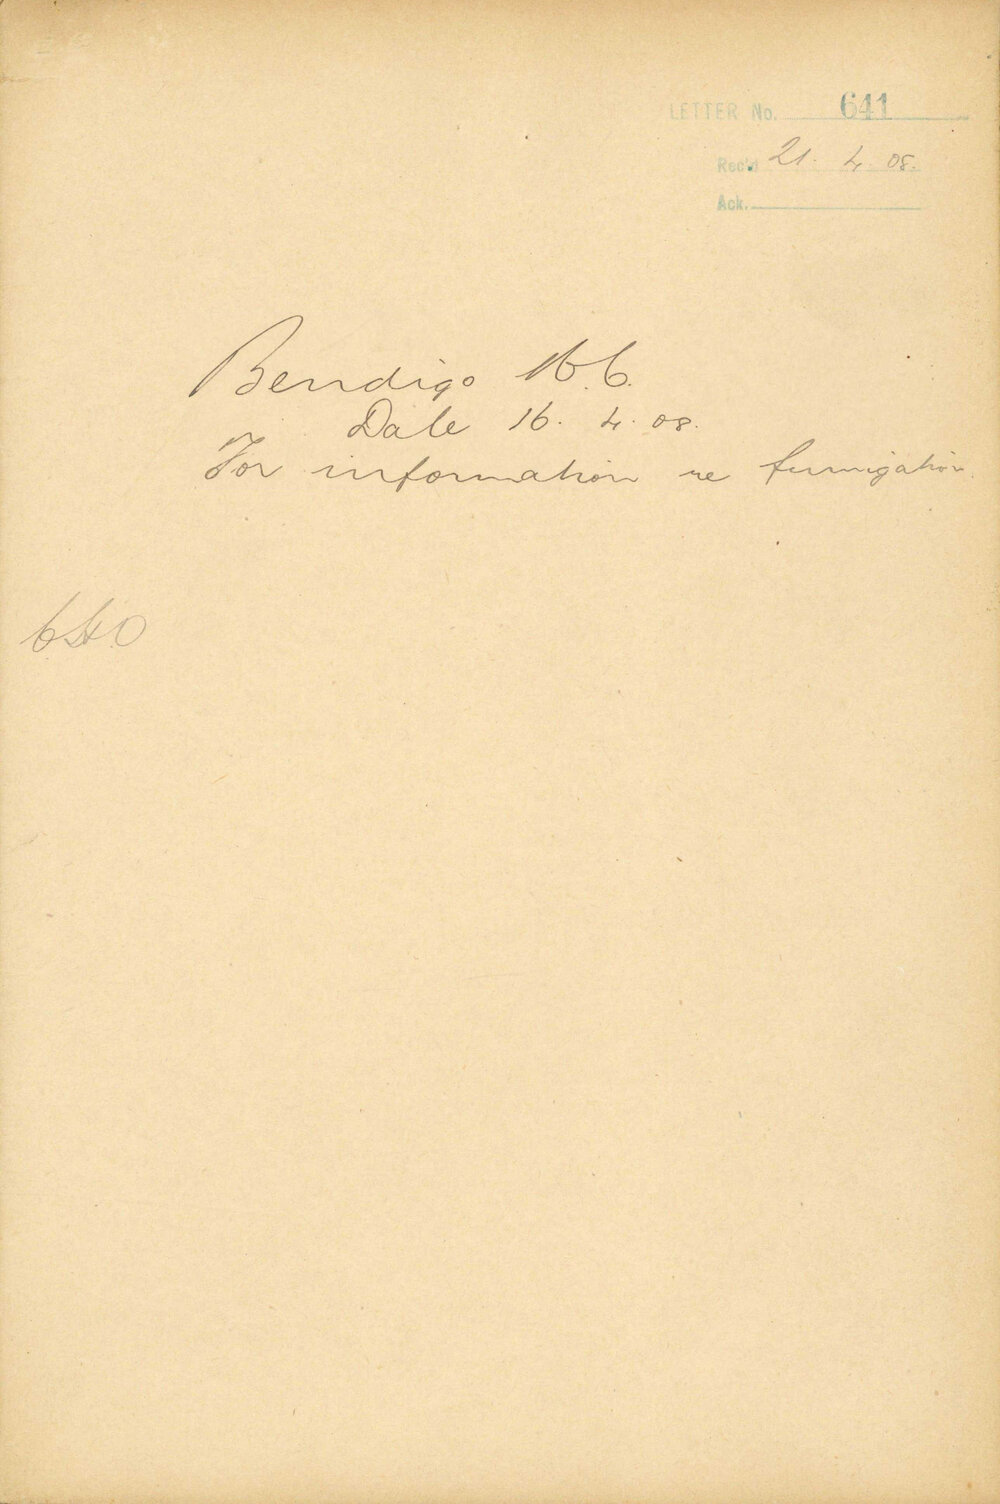 LETTER No. 641
Rec'd 21. 4. 08.
Ack.
Bendigo
Date 16. 4. 08.
For information re fumigation